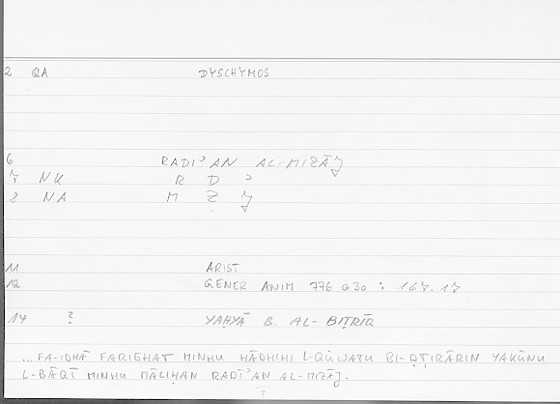 2 QA DYSCHYMOS
6 RADIʾAN AL-MIZĀJ
7 NK R D ʾ
8 NA M Z J
11 ARIST
12 GENER ANIM 776 a30 : 167.17
14 ? YAḤYĀ B. AL-BIṬRĪQ
... FA-IDHĀ FARIGHAT MINHU HĀDHIHI L-QŪWATU BI-ḌṬIRĀRIN YAKŪNU
L-BĀQĪ MINHU MĀLIḤAN RADĪʾAN AL-MIZĀJ.